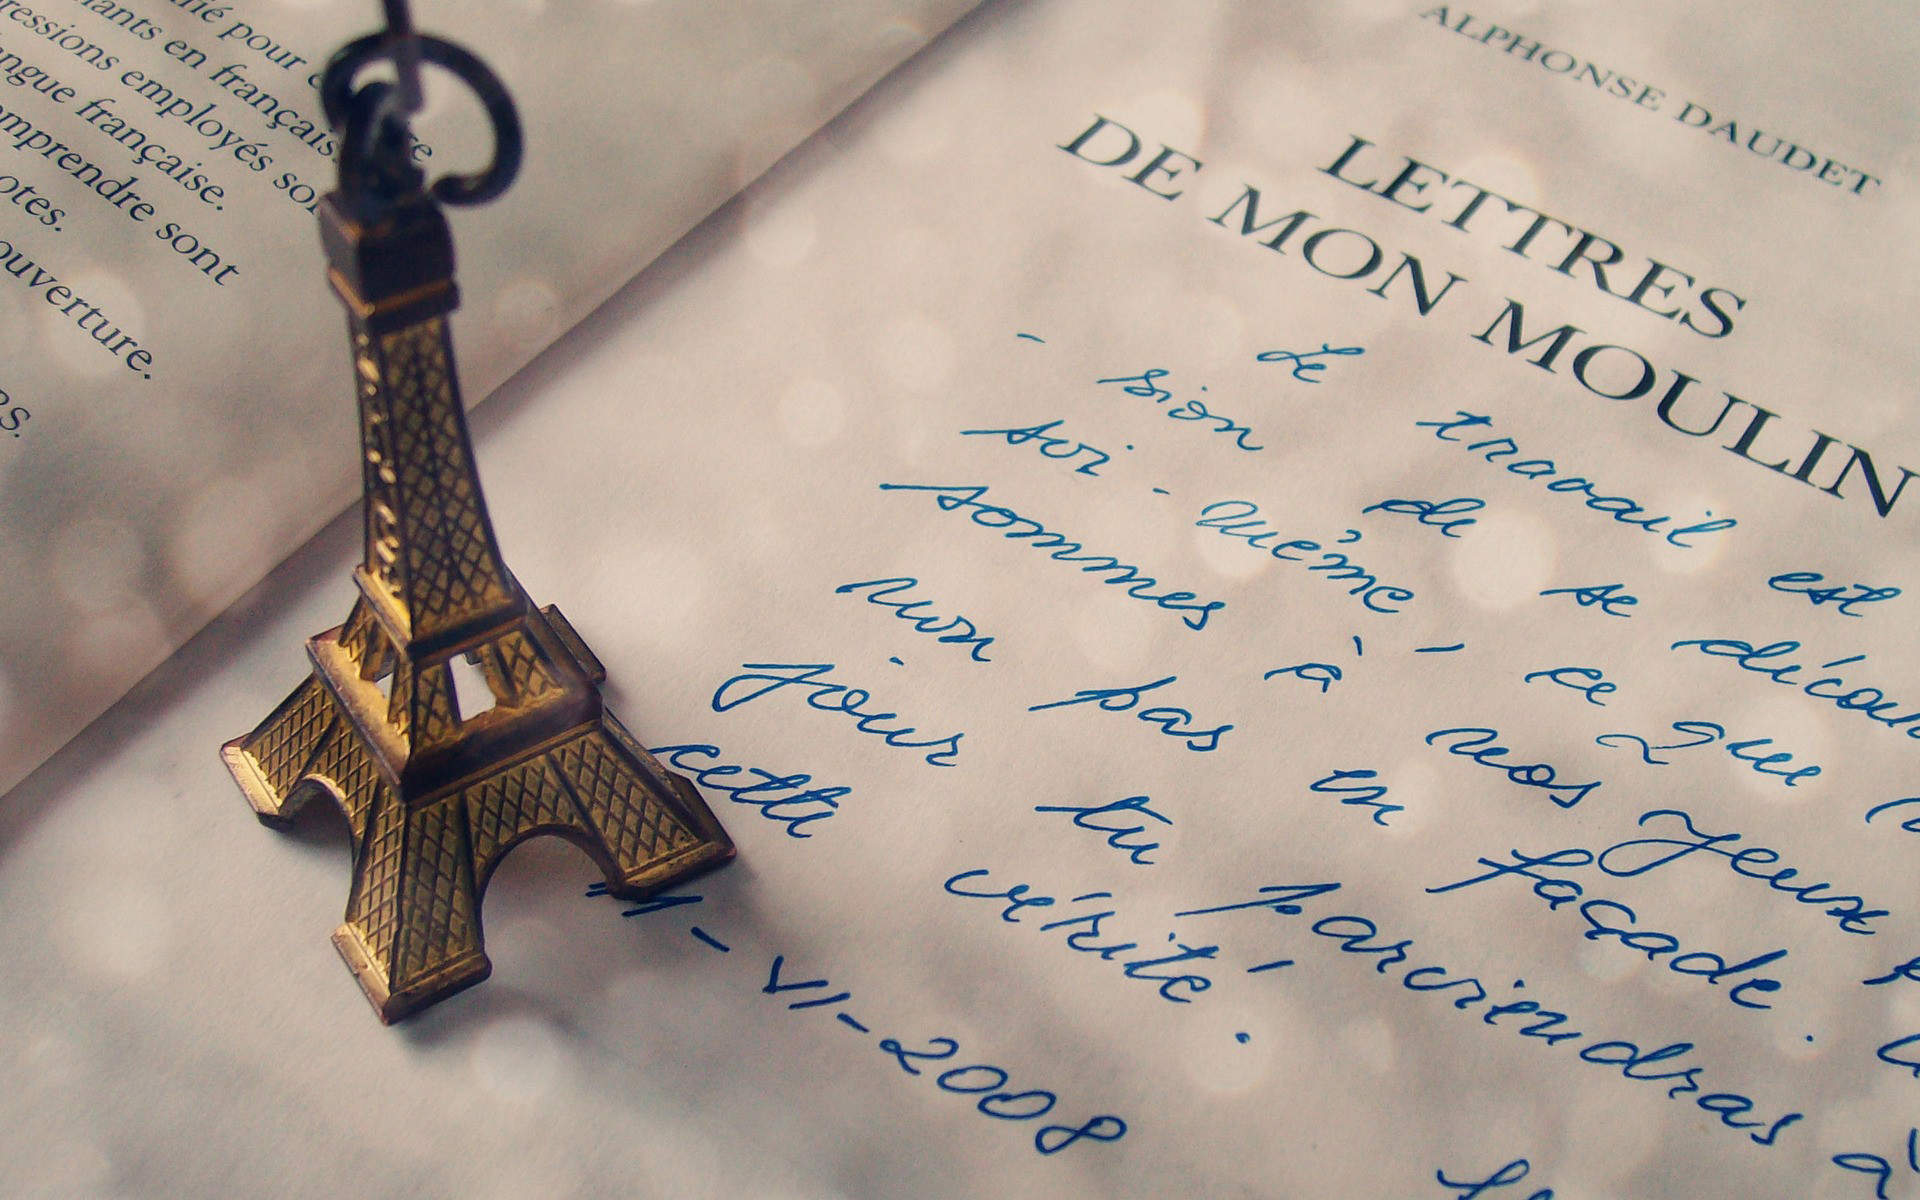 ié pour
nants en français.
ressions employés son
ngue française.
omprendre sont
otes.
ouverture.
RS.
ALPHONSE DAUDET
LETTRES
DE MON MOULIN
Le travail est
- sion de se découv
soi-même, ce que
sommes à nos yeux
non pas en façade.
jour tu parviendras à
cette vérité.
11-VI-2008